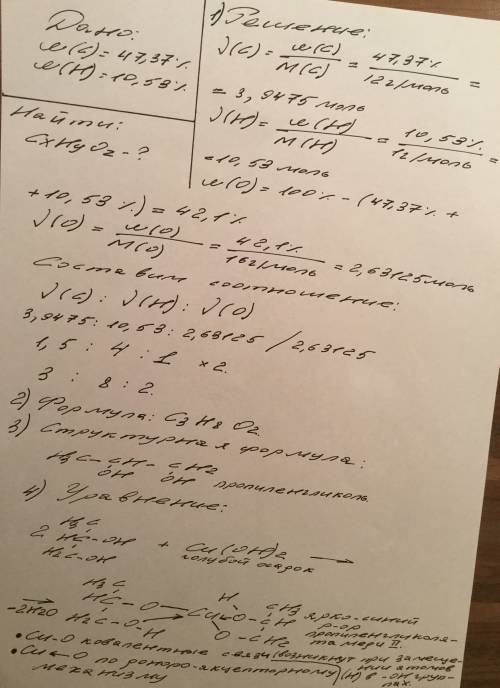 Дано:
w(C) = 47,37%
w(H) = 10,53%
Найти:
CxHyOz - ?
1) Решение:
ν(C) = w(C) / M(C) = 47,37% / 12г/моль =
= 3,9475 моль
ν(H) = w(H) / M(H) = 10,53% / 1г/моль =
= 10,53 моль
w(O) = 100% - (47,37% +
+ 10,53%) = 42,1%
ν(O) = w(O) / M(O) = 42,1% / 16г/моль = 2,63125 моль
Составим соотношение:
ν(C) : ν(H) : ν(O)
3,9475 : 10,53 : 2,63125 / 2,63125
1,5 : 4 : 1 ×2
3 : 8 : 2
2) Формула: C3H8O2
3) Структурная формула:
H3C - CH - CH2
OH OH пропиленгликоль
4) Уравнение:
H3C
2 HC-OH + Cu(OH)2 →
H2C-OH голубой осадок
H3C H
HC - O Cu O - CH CH3 ярко-синий
-2H2O H2C - O - H O - CH2 р-ор
пропиленгликоля-
та меди II.
• Cu-O ковалентные связи (возникнут при замеще-
нии атомов
• Cu←O по донорно-акцепторному (H) в -OH груп-
механизму пах.